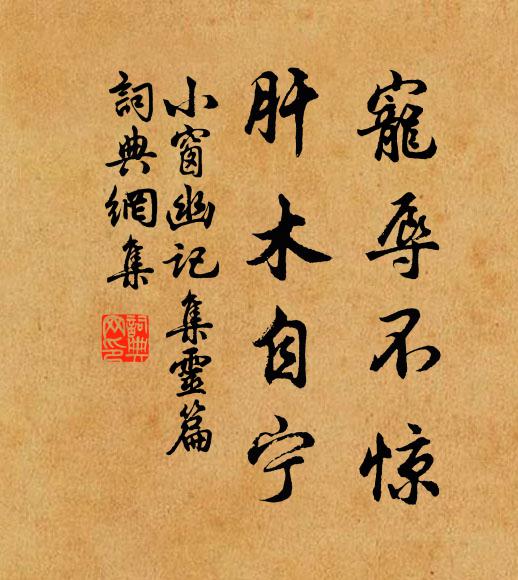 寵辱不惊
肝木自宁
小窗幽记集靈篇
詞典網集
詞典網印